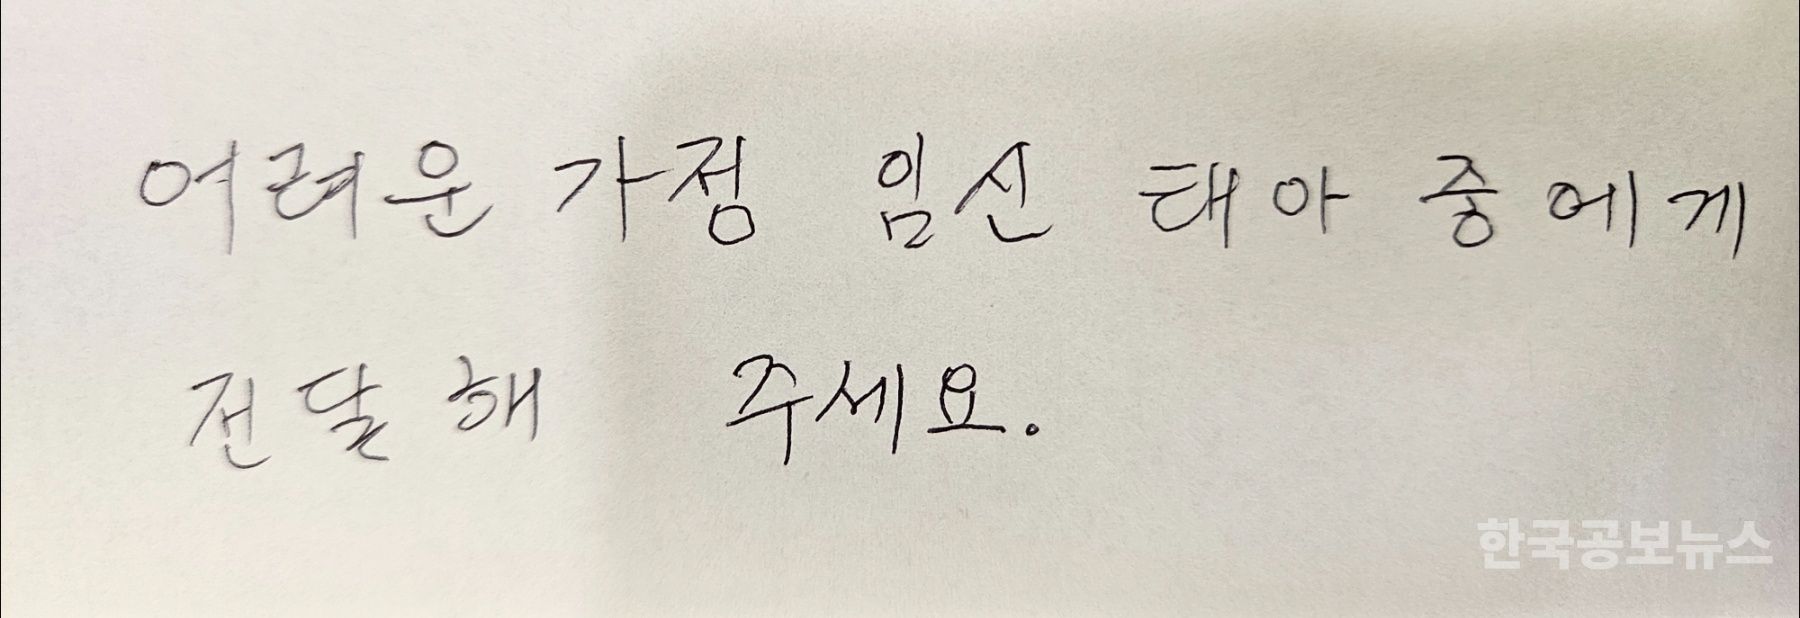 어려운 가정 임신 태아 중에게
전달해 주세요.
한국공보뉴스